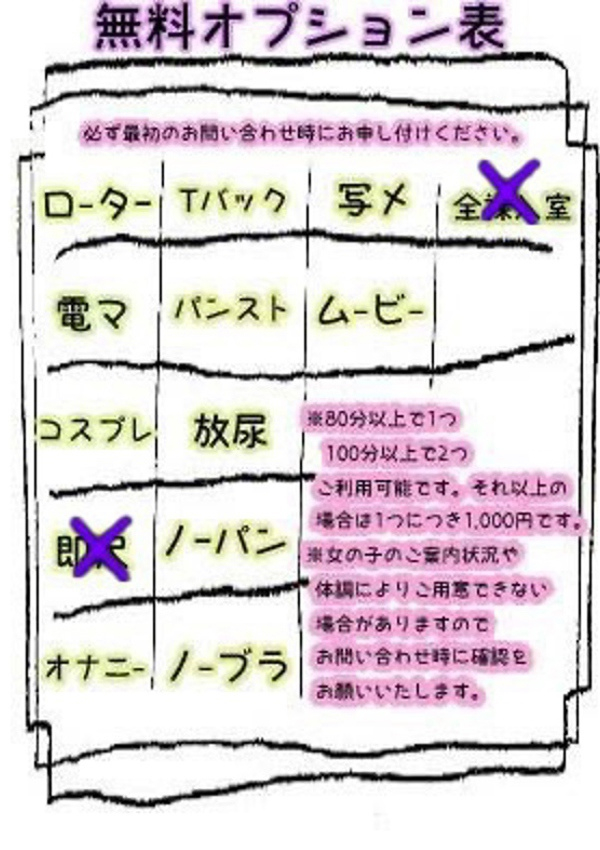 無料オプション表
必ず最初のお問い合わせ時にお申し付けください。
ローター Tバック 写メ 全裸入室
電マ パンスト ムービー
コスプレ 放尿
即尺 ノーパン
オナニー ノーブラ
※80分以上で1つ
100分以上で2つ
ご利用可能です。それ以上の
場合は1つにつき1,000円です。
※女の子のご案内状況や
体調によりご用意できない
場合がありますので
お問い合わせ時に確認を
お願いいたします。